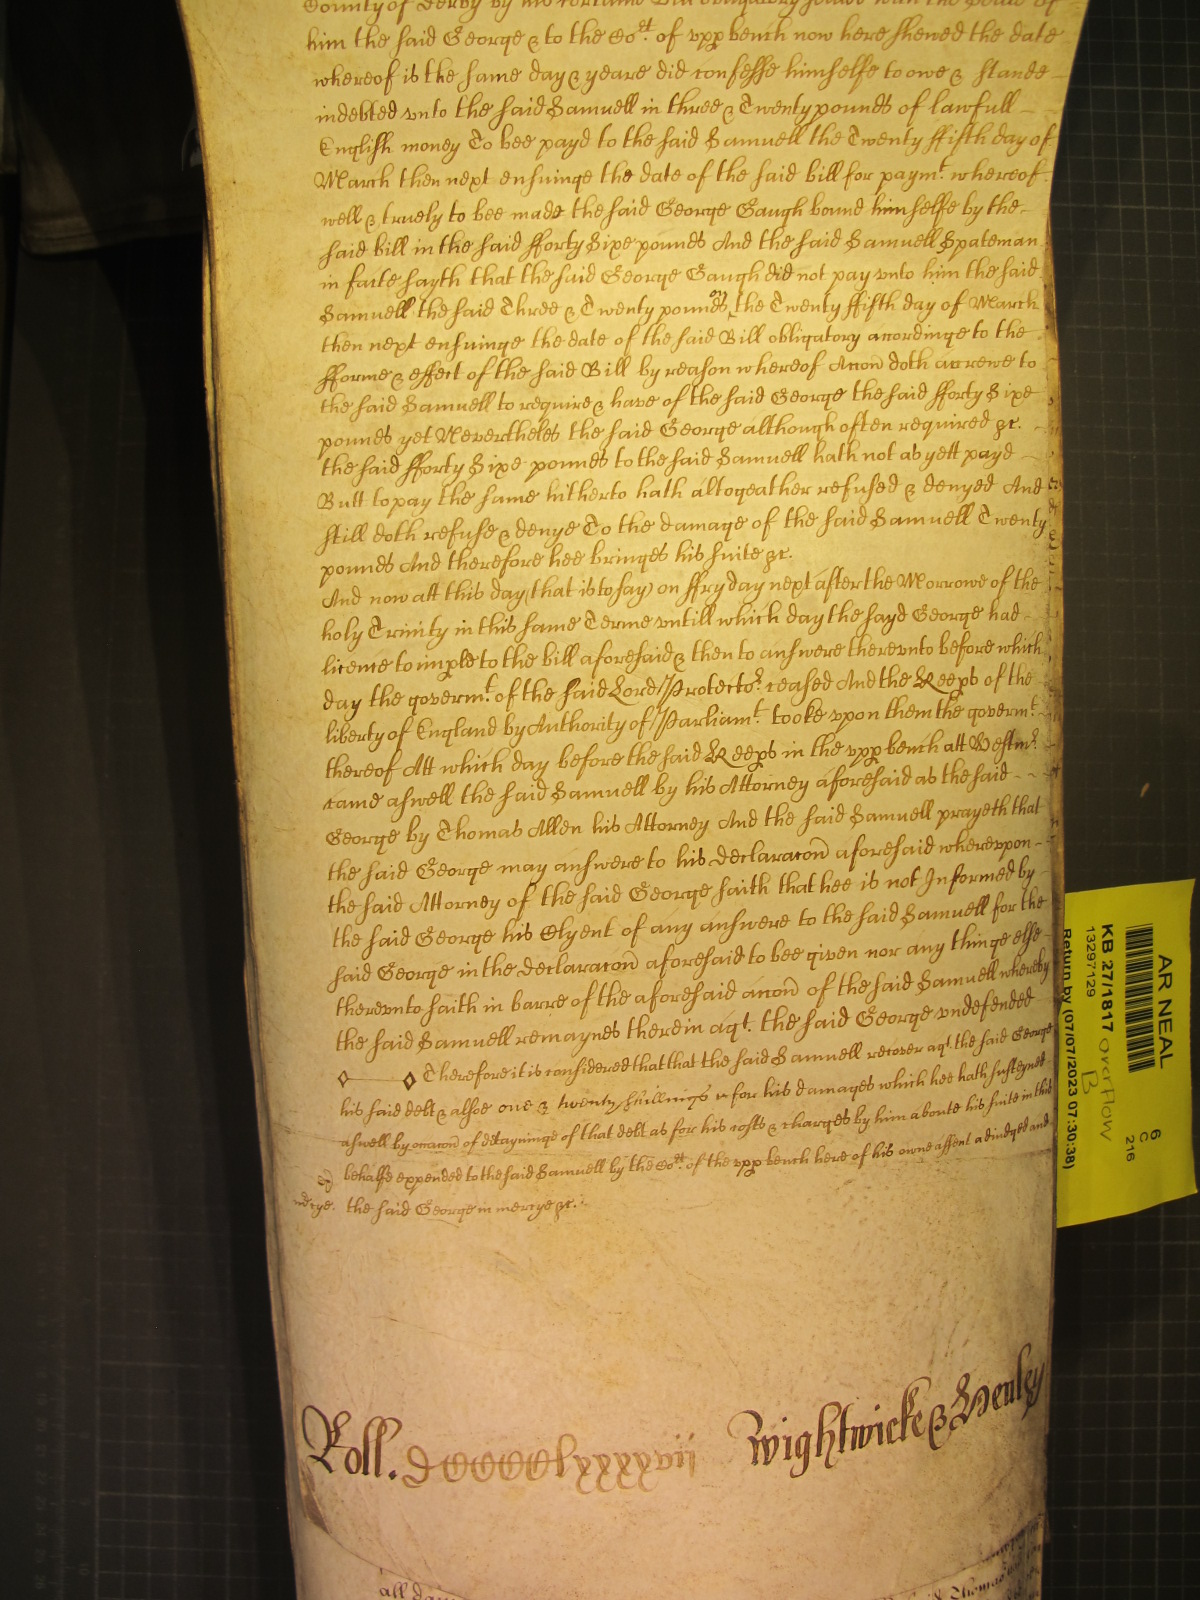 County of Derby by his certaine Bill obligatory sealed with the seale of
him the said George & to the Cot. of vpp bench now here shewed the date
whereof is the same day & yeare did confesse himselfe to owe & stande
indebted vnto the said Samuell in three & Twenty pounds of lawfull
English money To bee payd to the said Samuell the Twenty ffifth day of
March then next ensuinge the date of the said bill for paymt. whereof
well & truely to bee made the said George Gaugh bound himselfe by the
said bill in the said fforty Sixe pounds And the said Samuell Spateman
in facte sayth that the said George Gaugh did not pay vnto him the said
Samuell the said Three & Twenty pounds on the Twenty ffifth day of March
then next ensuinge the date of the said Bill obligatory accordinge to the
fforme & effect of the said Bill by reason whereof Accon doth accrewe to
the said Samuell to require & have of the said George the said fforty Sixe
pounds yet Nevertheles the said George although often required &c.
the said fforty Sixe pounds to the said Samuell hath not as yett payd
Butt to pay the same hitherto hath altogeather refused & denyed And
still doth refuse & denye To the damage of the said Samuell Twenty
pounds And therefore hee bringes his suite &c.
And now att this day (that is to say) on ffryday next after the Morrowe of the
holy Trinity in this same Terme vntill which day the sayd George had
licence to imple to the bill aforesaid & then to answere therevnto before which
day the governmt. of the said Lord Protector. ceased And the Keeps of the
liberty of England by Authority of Parliamt. tooke vpon them the governmt.
thereof Att which day before the said Keeps in the vpp bench att Westmr.
came aswell the said Samuell by his Attorney aforesaid as the said
George by Thomas Allen his Attorney And the said Samuell prayeth that
the said George may answere to his declaracon aforesaid wherevpon
the said Attorney of the said George saith that hee is not Informed by
the said George his Clyent of any answere to the said Samuell for the
said George in the declaracon aforesaid to bee given nor any thinge else
therevnto saith in barre of the aforesaid accon of the said Samuell whereby
the said Samuell remaynes therein agt. the said George vndefended
Therefore it is considered that that the said Samuell recover agt. the said George
his said debt & alsoe one & twenty shillings for his damages which hee hath susteyned
aswell by occacon of detayninge of that debt as for his costs & charges by him aboute his suite in this
behalfe expended to the said Samuell by the Cot. of the vpp bench here of his owne assent adiudged and
mercye. the said George in mercye &c.
Roll. Wightwicke & Henley
all
said Thomas
AR NEAL
KB 27/1817 overflow
B
13297129
Return by (07/07/2023 07:30:38)
6
C
216